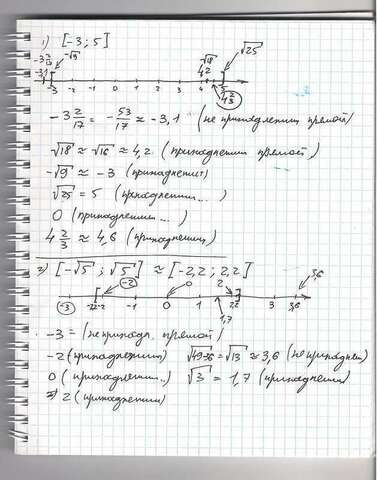 1) [-3; 5]
-3 2/17 -√9 √18 √25
-3,1 4,2
-3 -2 -1 0 1 2 3 4 5
4 2/3
-3 2/17 = -53/17 ≈ -3,1 (не принадлежит прямой)
√18 ≈ √16 ≈ 4,2 (принадлежит прямой)
-√9 ≈ -3 (принадлежит)
√25 = 5 (принадлежит...)
0 (принадлежит...)
4 2/3 ≈ 4,6 (принадлежит)
2) [-√5; √5] ≈ [-2,2; 2,2]
-2 0 2 3,6
-3 -2,2 -1 0 1 2,2 3 3,6
1,7
-3 = (не принадл. прямой)
-2 (принадлежит) √49-36 = √13 ≈ 3,6 (не принадлеж)
0 (принадлежит..) √3 = 1,7 (принадлежит)
2 (принадлежит)